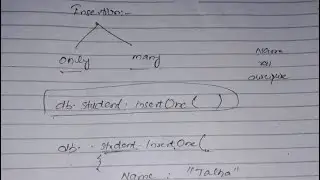 Insertion:-
only many
Name
db. student. insertOne( )
db. student. insertOne(
{
Name : "Talha"